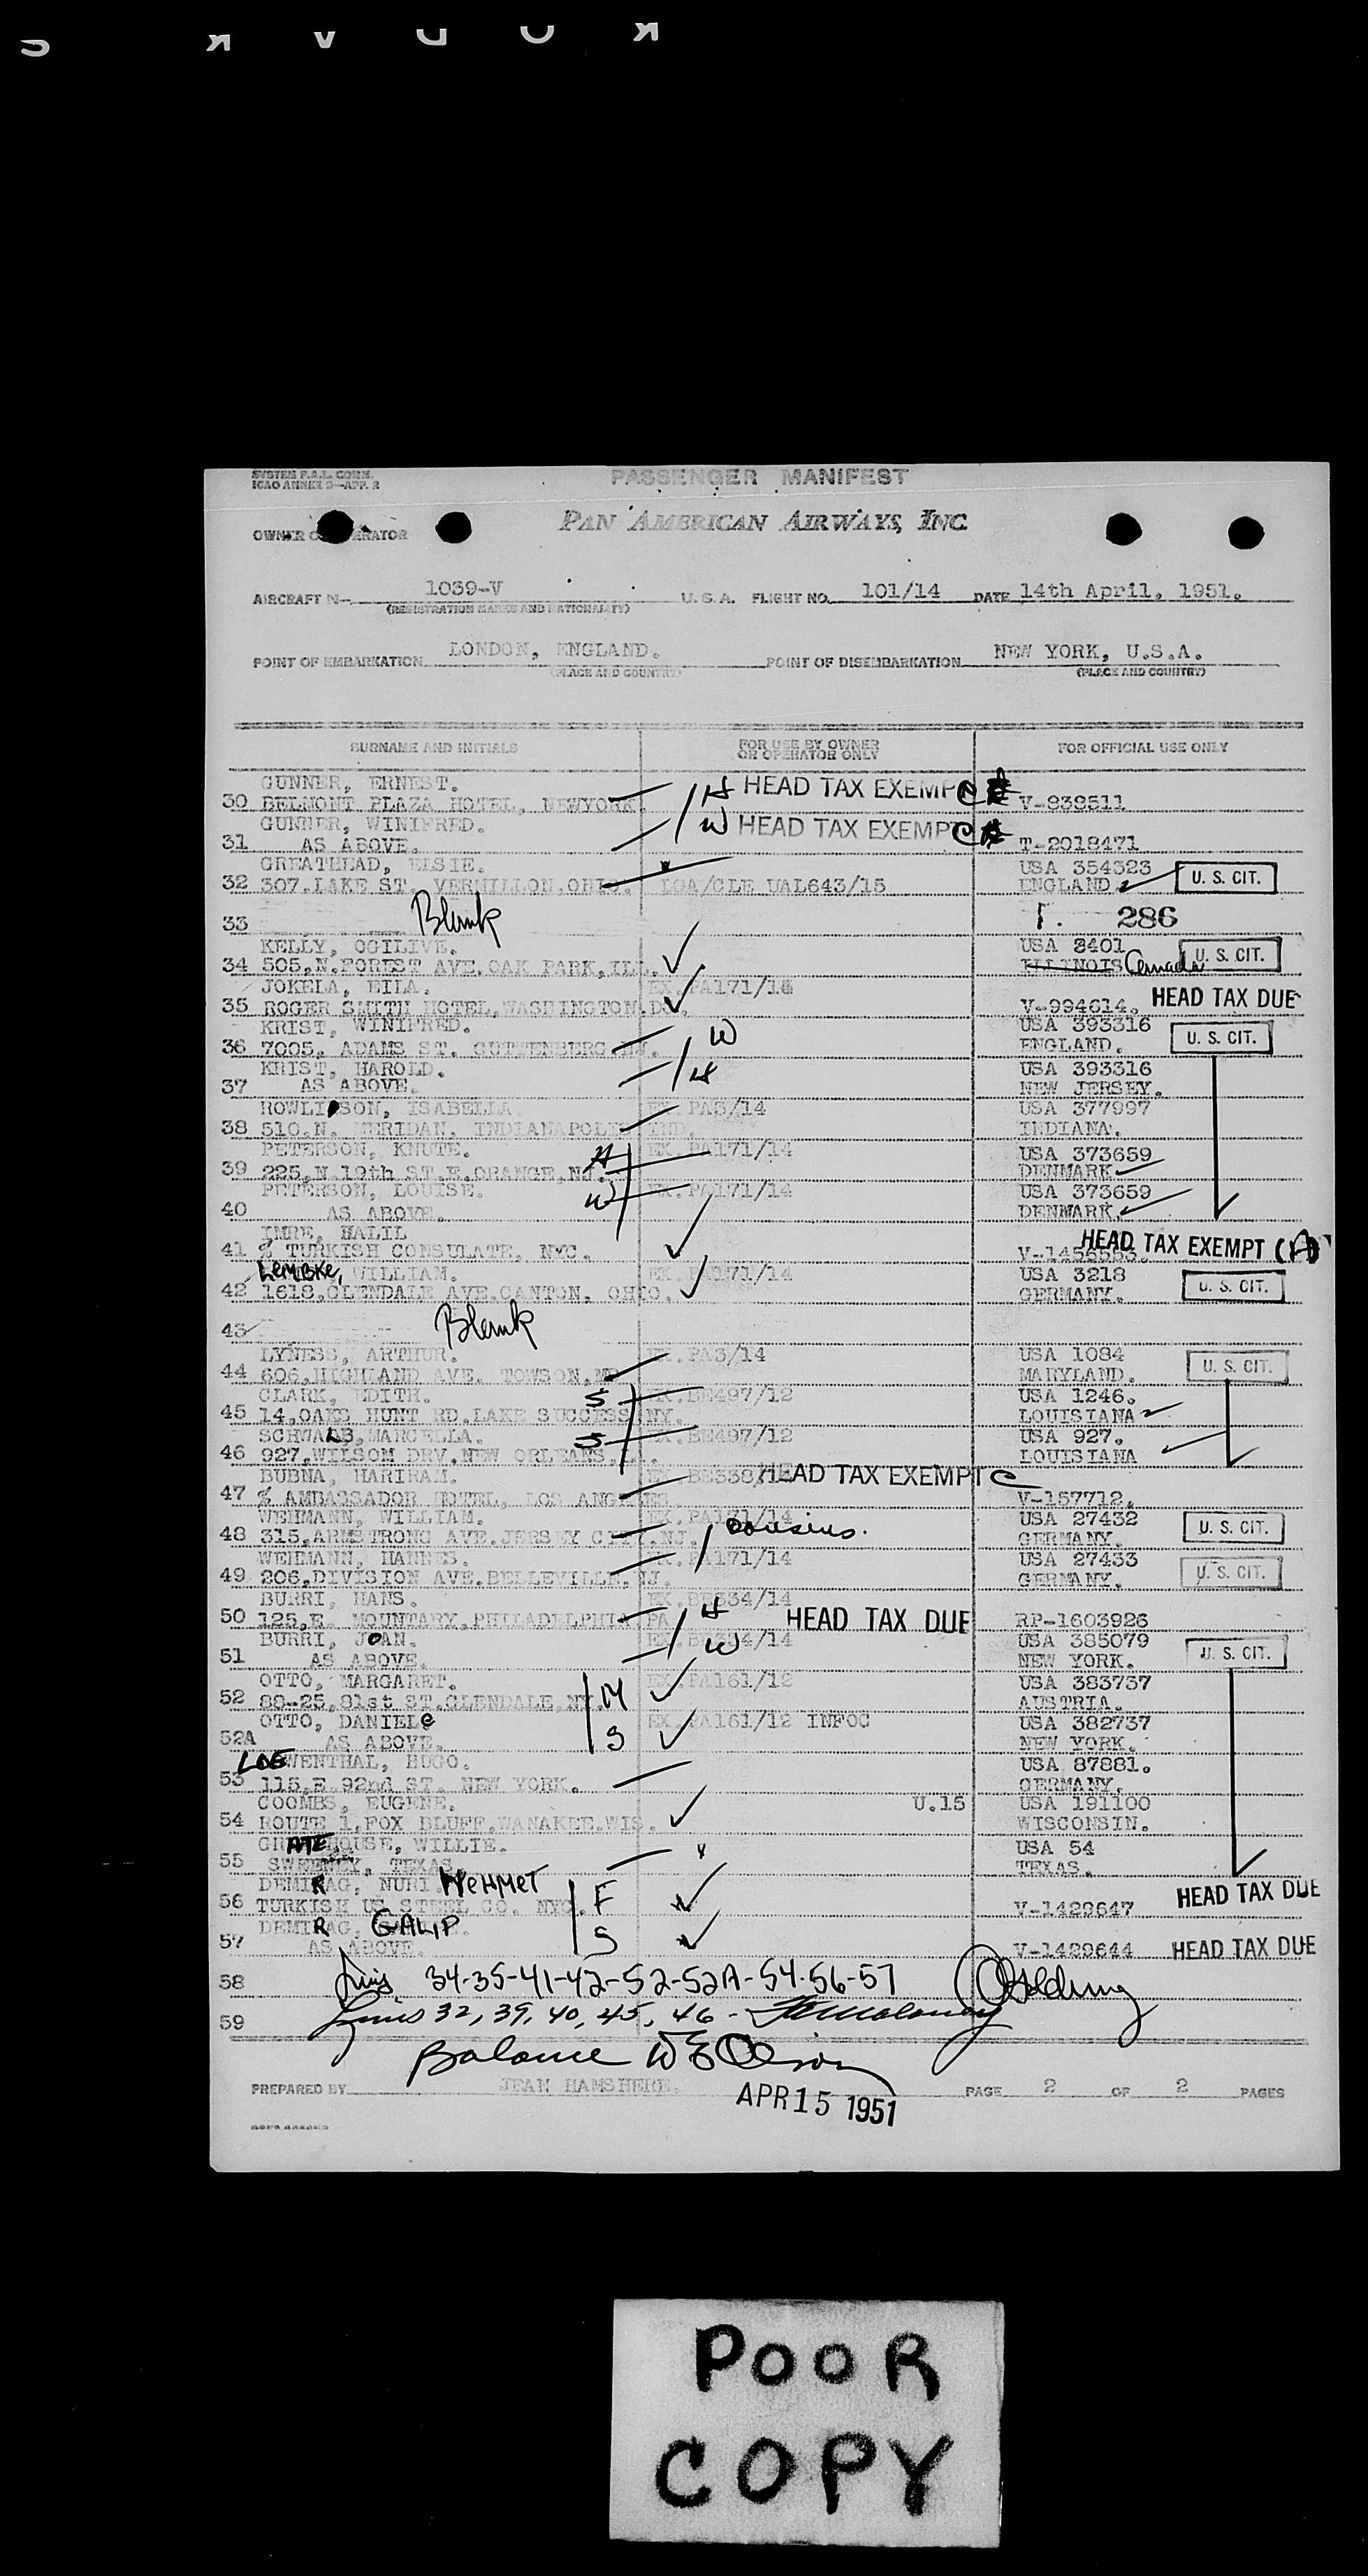 SYSTEM F.A.L. COMM.
ICAO ANNEX 9—APP. 2
PASSENGER MANIFEST
OWNER OR OPERATOR
PAN AMERICAN AIRWAYS, INC.
AIRCRAFT N-- 1039-V U.S.A. FLIGHT NO. 101/14 DATE 14th April, 1951.
(REGISTRATION MARKS AND NATIONALITY)
POINT OF EMBARKATION LONDON, ENGLAND. POINT OF DISEMBARKATION NEW YORK, U.S.A.
(PLACE AND COUNTRY) (PLACE AND COUNTRY)
SURNAME AND INITIALS FOR USE BY OWNER OR OPERATOR ONLY FOR OFFICIAL USE ONLY
GUNNER, ERNEST. H HEAD TAX EXEMPT C
30 BELMONT PLAZA HOTEL, NEWYORK. V-838511
GUNNER, WINIFRED. W HEAD TAX EXEMPT C
31 AS ABOVE. T-2018471
GREATHEAD, ELSIE. USA 354323
32 307.LAKE ST. VERMILLON.OHIO. LGA/CLE UAL643/15 ENGLAND U. S. CIT.
33 Blank 286
KELLY, OGILIVE. USA 8401
34 505.N.FOREST AVE.OAK PARK,ILL. ILLINOIS Canada U. S. CIT.
JOKELA, EILA. EX.PA171/18
35 ROGER SMITH HOTEL,WASHINGTON.DC. V-994614. HEAD TAX DUE
KRIST, WINIFRED. W USA 393316
36 7005, ADAMS ST. GUTTENBERG NJ. ENGLAND. U. S. CIT.
KRIST, HAROLD. H USA 393316
37 AS ABOVE. NEW JERSEY.
ROWLISON, ISABELLA. EX.PA3/14 USA 377997
38 510.N. MERIDAN. INDIANAPOLIS IND. INDIANA.
PETERSON, KNUTE. H EX.PA171/14 USA 373659
39 225.N.19th ST.E.ORANGE,NJ. DENMARK
PETERSON, LOUISE. W EX.PA171/14 USA 373659
40 AS ABOVE. DENMARK.
IMRE, HALIL HEAD TAX EXEMPT (A)
41 % TURKISH CONSULATE, NYC.
LEMBKE, WILLIAM. EX.PA171/14 USA 3218
42 1618.GLENDALE AVE.CANTON. OHIO. GERMANY. U. S. CIT.
43 Blank
LYNESS, ARTHUR. EX.PA3/14 USA 1084
44 606.HIGHLAND AVE. TOWSON.MD MARYLAND. U. S. CIT.
CLARK, EDITH. S EX.BE497/12 USA 1246.
45 14.OAKS HUNT RD.LAKE SUCCESS NY. LOUISIANA
SCHWALB, MARCELLA. S EX.BE497/12 USA 927.
46 927.WILSON DRV.NEW ORLEANS.L. LOUISIANA
BUBNA, HARIRAM. HEAD TAX EXEMPT C
47 % AMBASSADOR HOTEL, LOS ANGELES. V-157712.
WEHMANN, WILLIAM. EX.PA171/14 USA 27432
48 315.ARMSTRONG AVE.JERSEY CITY.NJ. cousins. GERMANY. U. S. CIT.
WEHMANN, HANNES. EX.PA171/14 USA 27433
49 206,DIVISION AVE.BELLEVILLE.NJ. GERMANY. U. S. CIT.
BURRI, HANS. EX.BE334/14
50 125.E. MOUNTARY.PHILADELPHIA PA H HEAD TAX DUE RP-1603926
BURRI, JOAN. EX.BE334/14 USA 385079
51 AS ABOVE. W NEW YORK. U. S. CIT.
OTTO, MARGARET. M EX.PA161/12 USA 383737
52 88-25,81st ST.GLENDALE,NY. AUSTRIA.
OTTO, DANIELe EX.PA161/12 INFOC USA 382737
52A AS ABOVE. S NEW YORK.
LOEWENTHAL, HUGO. USA 87881.
53 115.E.92nd ST. NEW YORK. GERMANY.
COOMBS, EUGENE. U.15 USA 191100
54 ROUTE 1.FOX BLUFF.WANAKEE.WIS. WISCONSIN.
GRATEHOUSE, WILLIE. USA 54
55 SWEENEY, TEXAS TEXAS.
DEMIRAG, NURI MEHMET
56 TURKISH US STEEL CO. NYC. F V-1429647 HEAD TAX DUE
DEMIRAG, GALIP
57 AS ABOVE. S V-1429644 HEAD TAX DUE
58 Lines 34-35-41-42-52-52A-54-56-57
59 Lines 32, 39, 40, 45, 46 -
Balance W E Olson
PREPARED BY JEAN HAMSHERE. APR 15 1951 PAGE 2 OF 2 PAGES
POOR
COPY